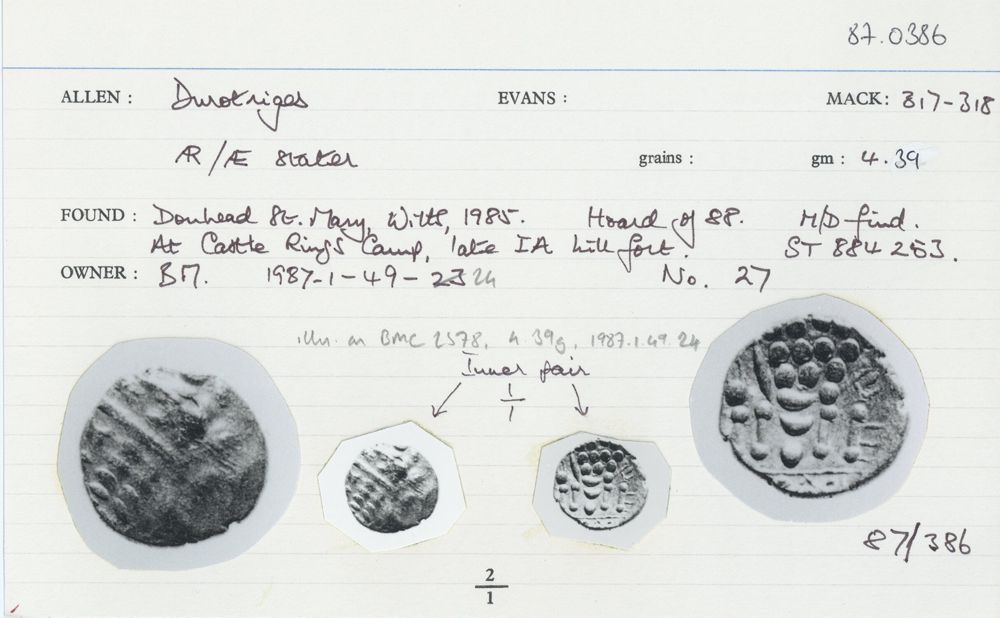 87.0386
ALLEN : Durotriges EVANS : MACK: 317-318
ÆR/Æ Stater grains : gm : 4.39
FOUND : Donhead St. Mary, Wilts, 1985. Hoard of 88. M/D find.
At Castle Rings Camp, late IA hill fort. ST 884 253.
OWNER : BM. 1987-1-49-23 24 No. 27
illn. on BMC 2578, 4.39g, 1987.1.49.24
Inner pair
1
1
87/386
2
1